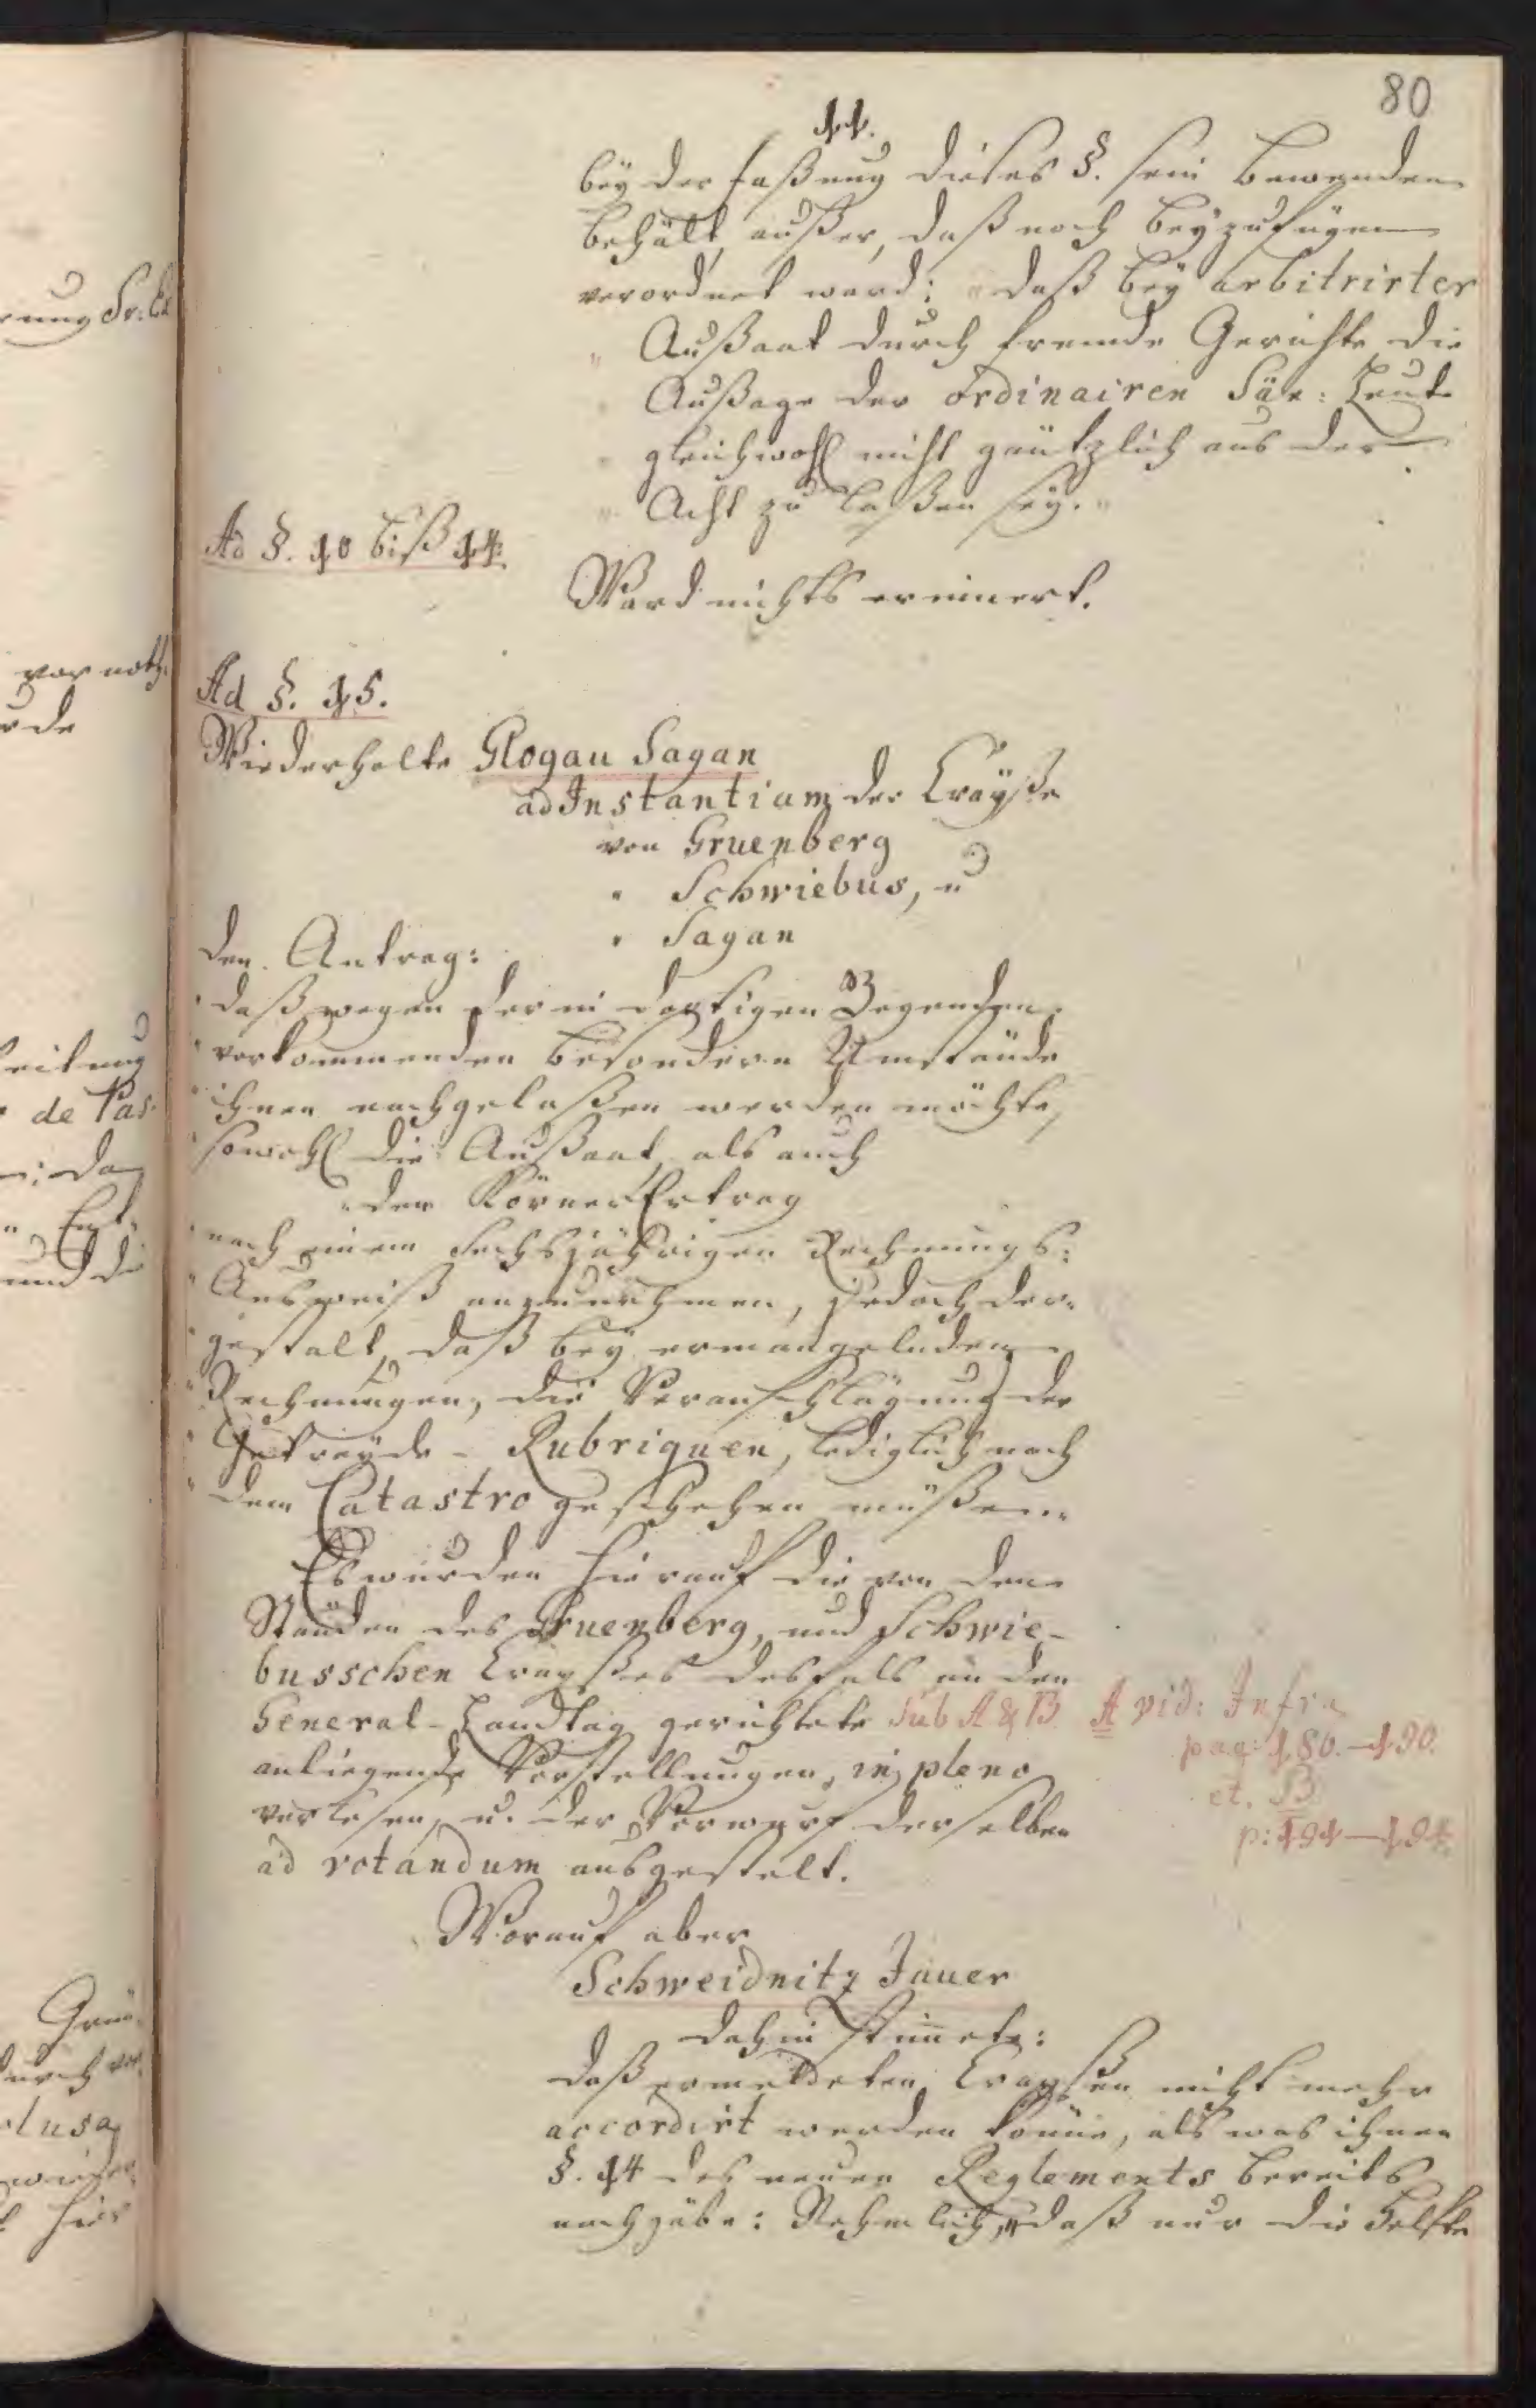 80
11.
bey der Faßung dieses §. sein Bewenden
behält, außer, daß noch beyzufügen
verordnet ward: „daß bey arbitrirter
„ Außaat durch fremde Gerichte die
„ Außage der ordinairen Säe: Leute
„ gleichwohl nicht gäntzlich aus der
„ Acht zu laßen sey.“
Ad §. 10 biß 14.
Ward nichts erinnert.
Ad §. 15.
Wiederholte Glogau Sagan
ad Instantiam der Crayße
von Gruenberg
„ Schwiebus, u
„ Sagan
den Antrag:
„daß wegen der in dortigen Gegenden
„vorkommenden besondern Umstände
„ihnen nachgelaßen werden möchte,
„sowohl die Außaat, als auch
„den Körner Ertrag
„nach einem Sechsjährigen Rechnungs:
„Ausweiß anzunehmen, jedoch der-
„gestalt, daß bey ermangelnden
„Rechnungen, die Veranschlagung der
„Getreyde - Rubriquen, lediglich nach
„dem Catastro geschehen müßen.
Es wurden hierauf die von den
Ständen des Gruenberg, und Schwie-
busschen Crayßes desfals an den
General-Landtag gerichtete sub A & B
anliegende Vorstellungen, in pleno
verlesen, u. der Vorwurf derselben
ad votandum ausgestelt.
A vid: Infra
pag: 186.-190.
et. B
p: 191-194.
Worauf aber
Schweidnitz Jauer
dahin stimete:
daß ermeldeten Crayßen nicht mehr
accordirt werden könne, als was ihnen
§. 14 des neuen Reglements bereits
nachgäbe: Nehmlich, „daß nur die Helfte